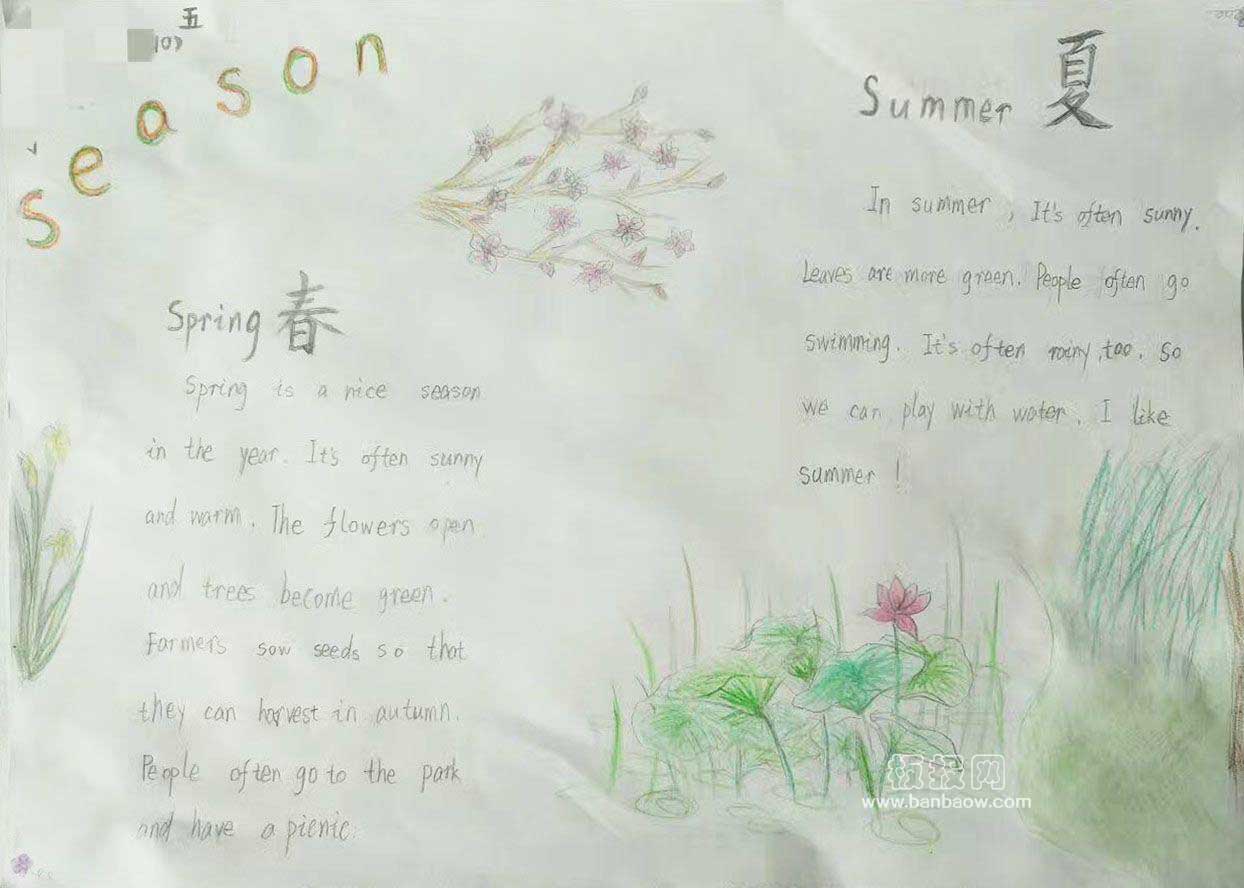 五
season
Spring 春
Spring is a nice season
in the year. It's often sunny
and warm. The flowers open
and trees become green.
Farmers sow seeds so that
they can harvest in autumn.
People often go to the park
and have a picnic.
Summer 夏
In summer, It's often sunny.
Leaves are more green. People often go
swimming. It's often rainy, too. So
we can play with water. I like
summer!
板报网
www.banbaow.com